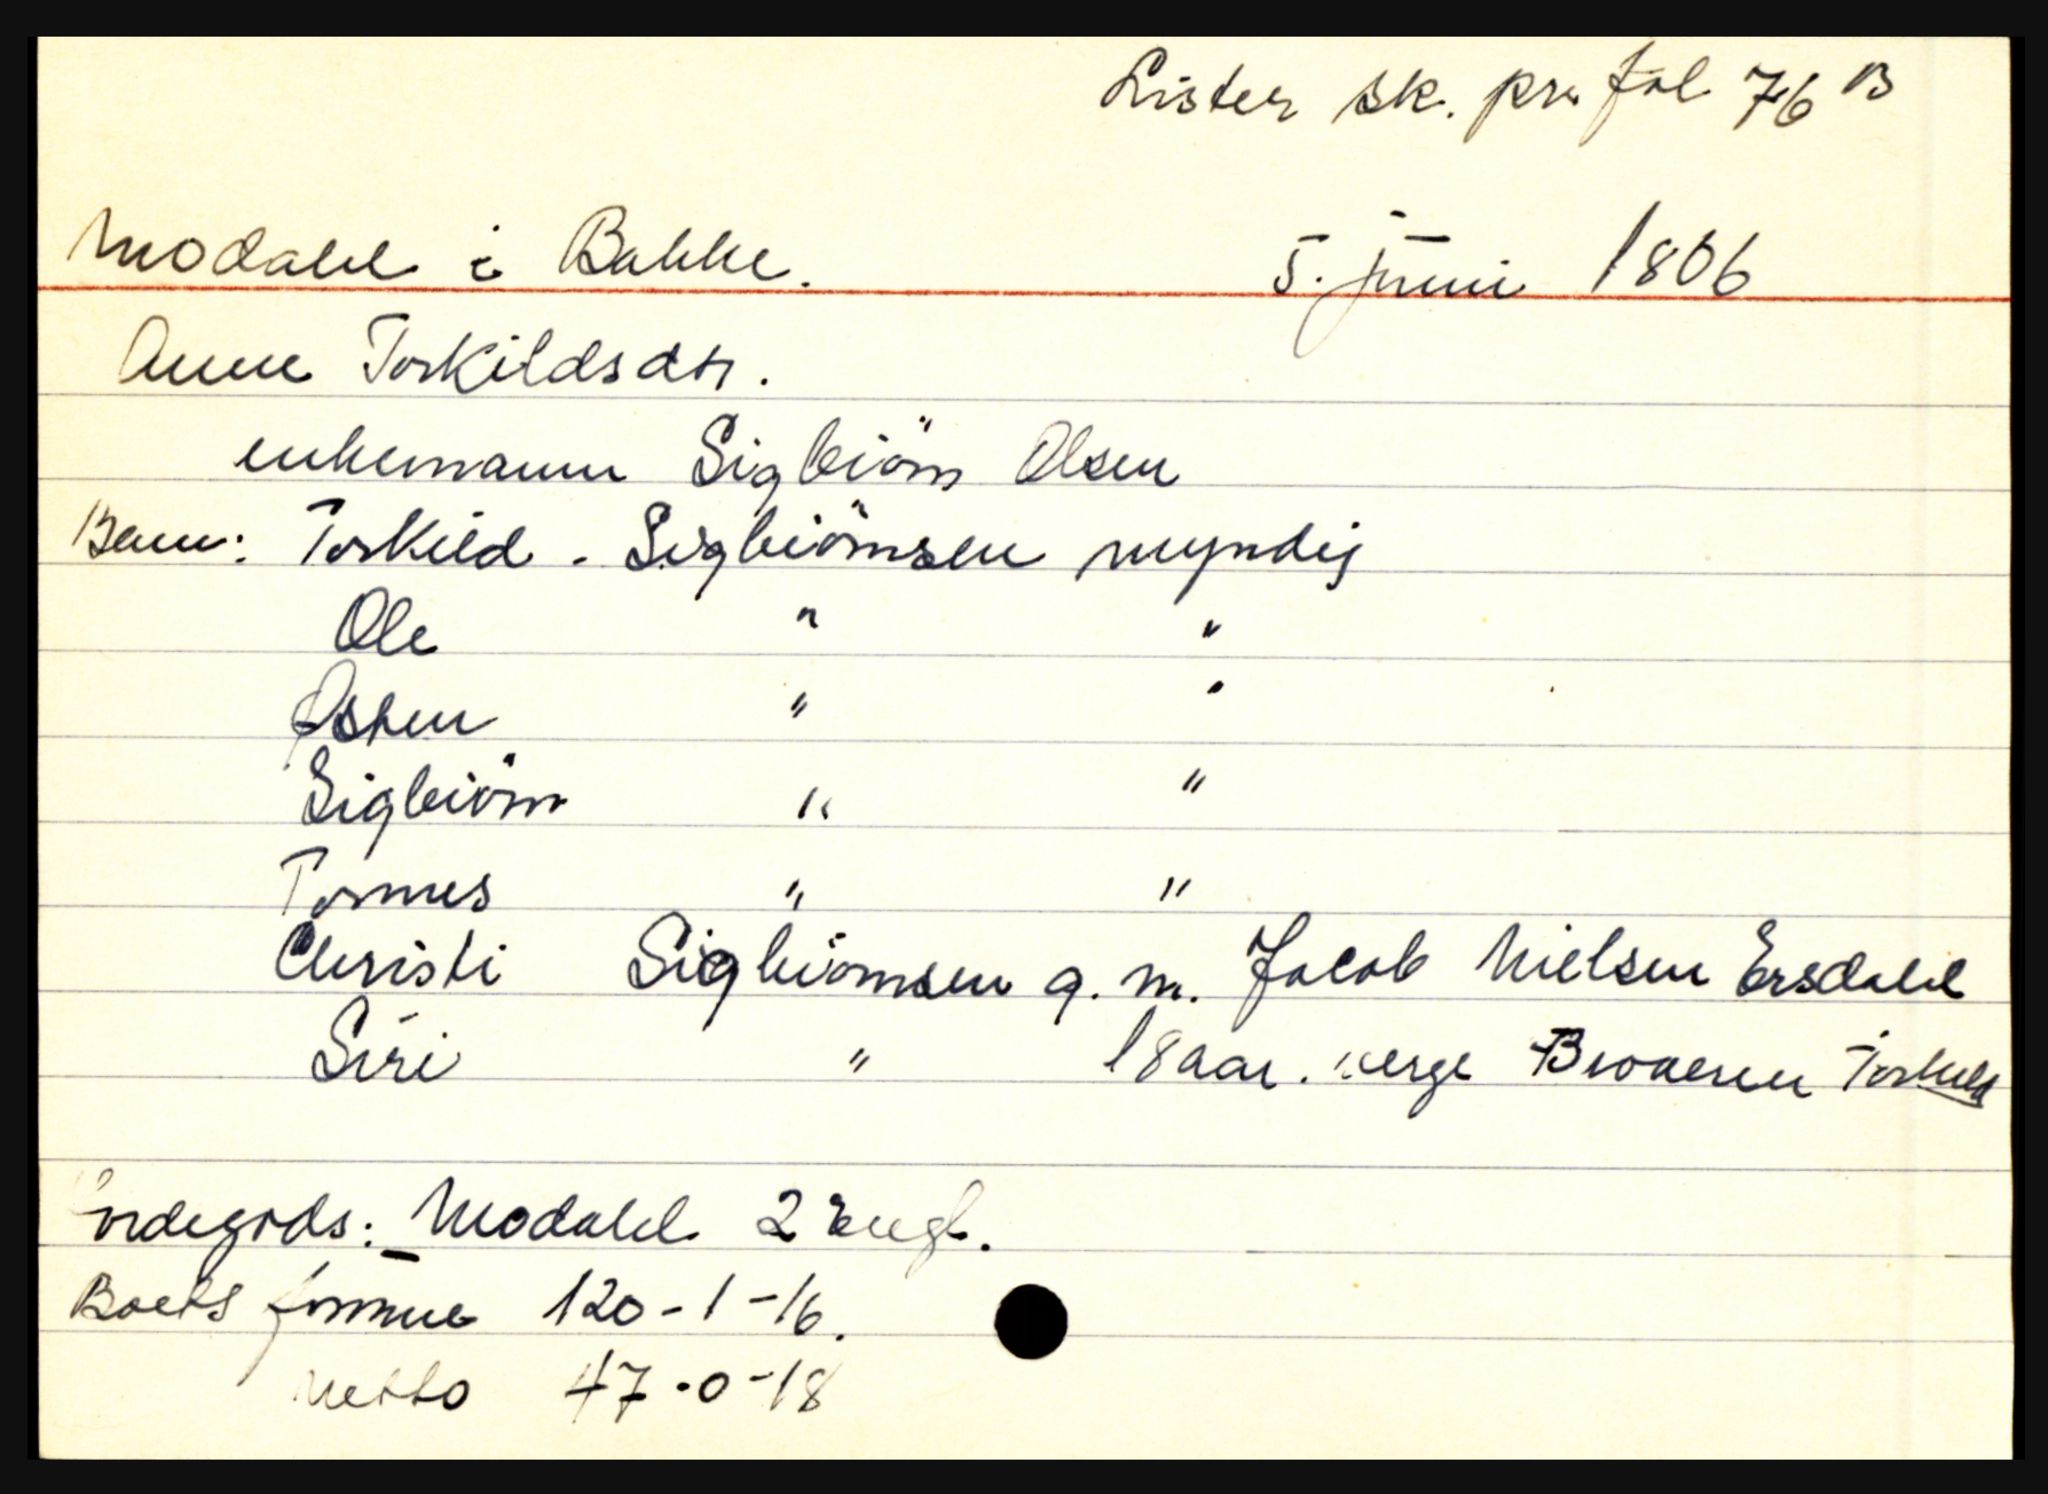 Lister sk. pr. fol 76 B
Modahl i Bakke. 5. juni 1806
Anne Torkildsdtr.
enkemann Sigbiörn Olsen
Barn: Torkild - Sigbiörnsen myndig
Ole " "
Osten " "
Sigbiörn " "
Tønnes " "
Christi Sigbiörnsen g. m. Jacob Nielsen Ersdahl
Siri " 18 aar. verge Broderen Torkild
Jordegods: Modahl 2 engl.
Boets formue 120-1-16.
netto 47-0-18